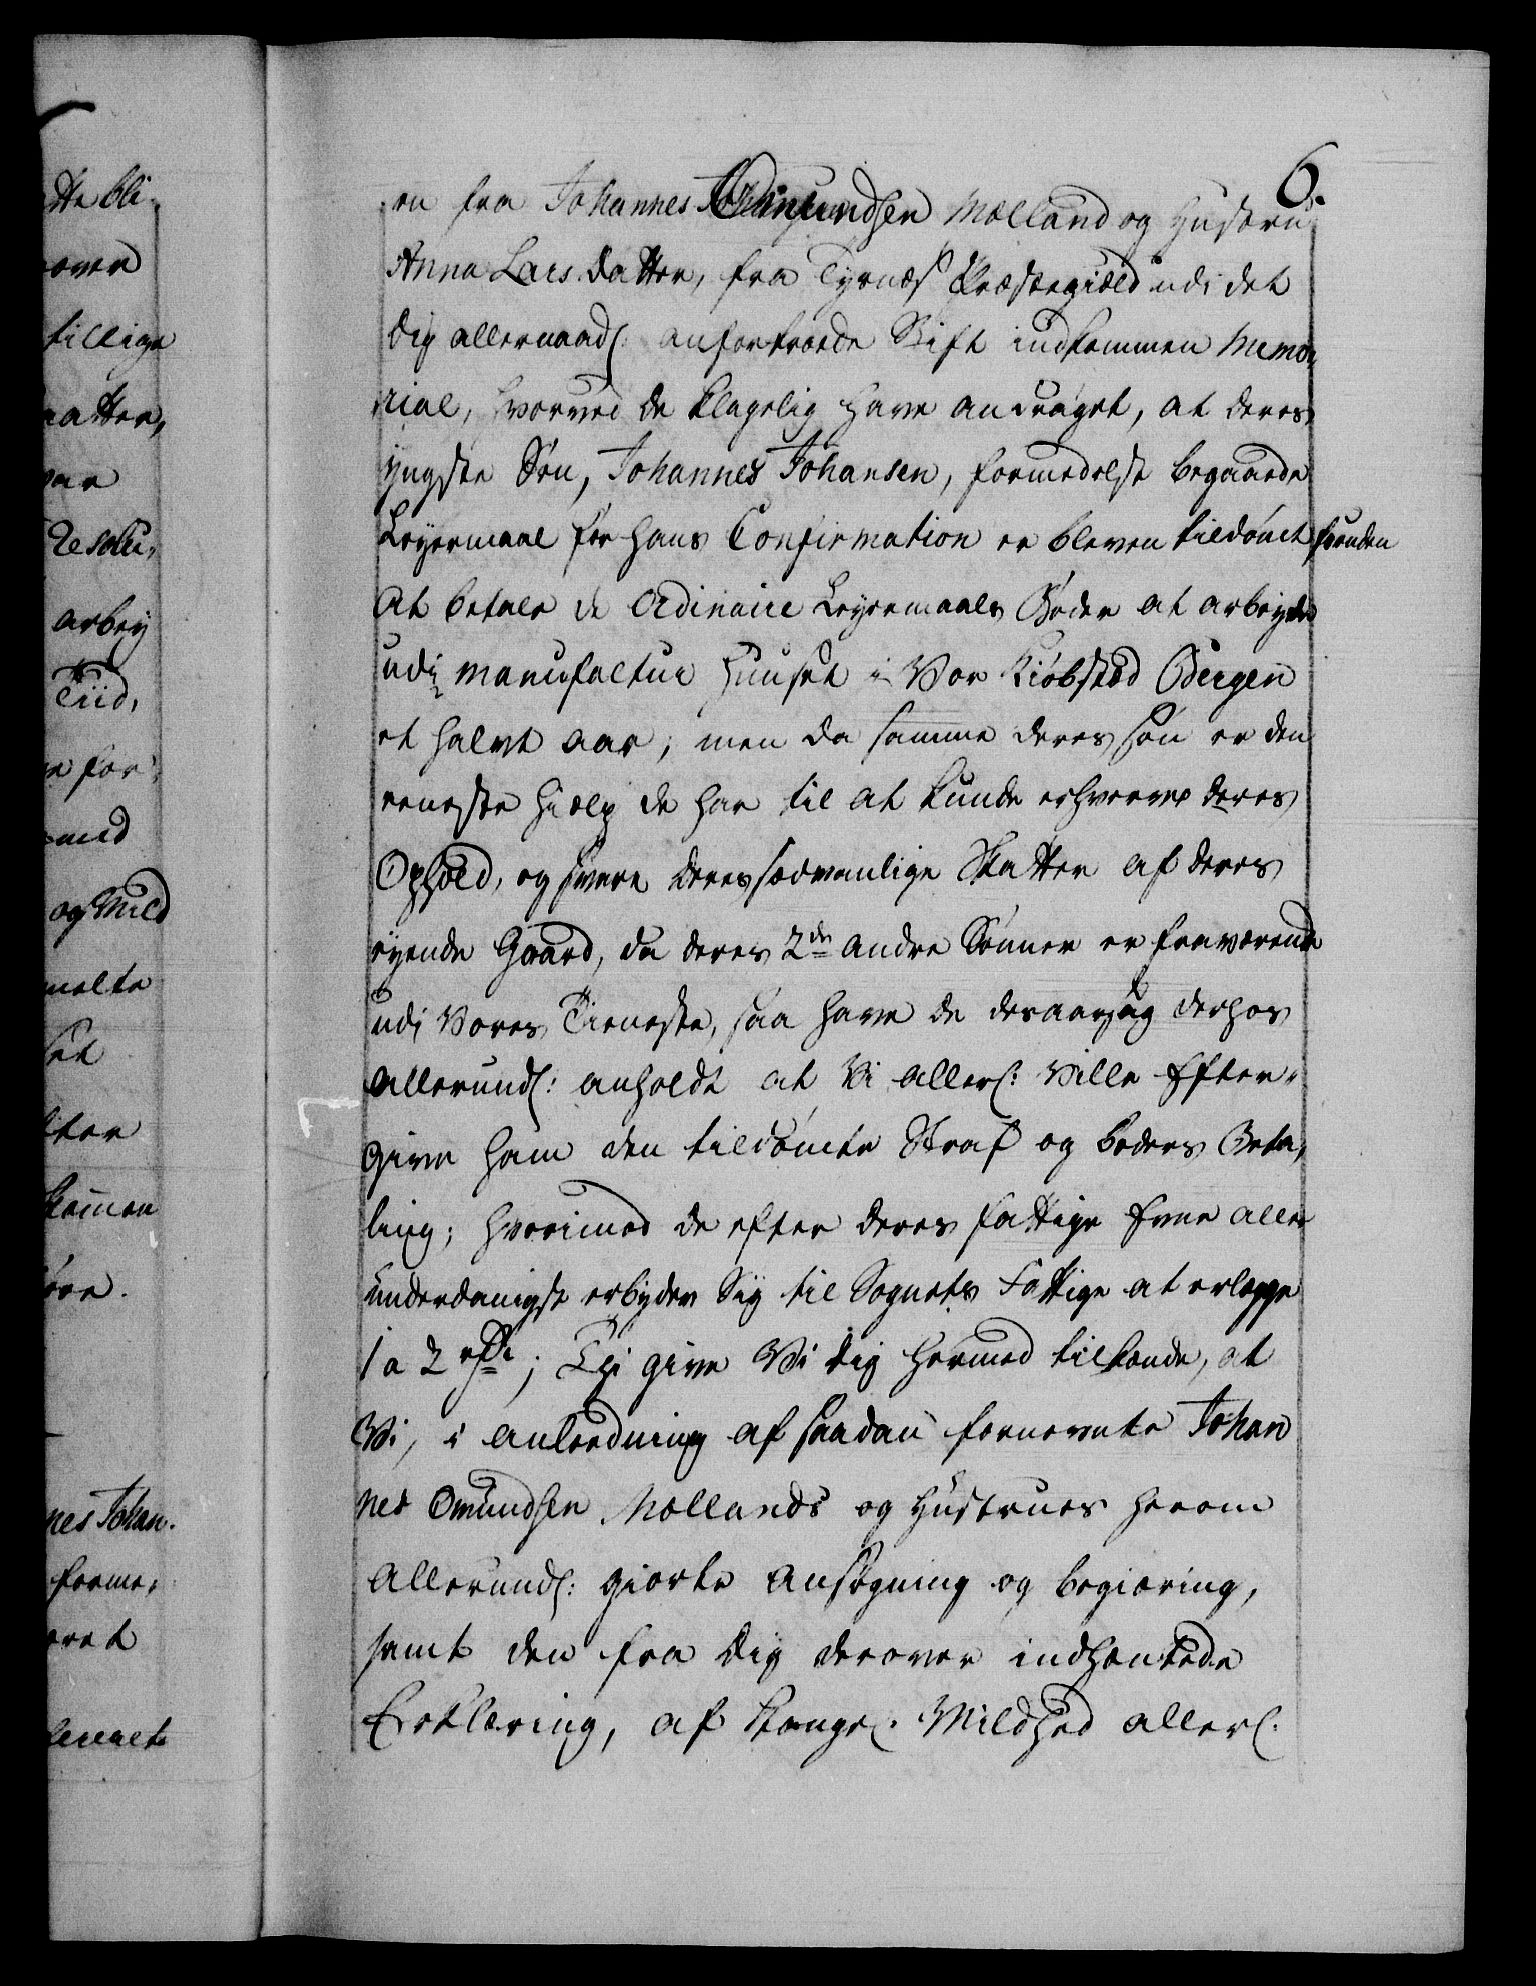 6.
en fra Johannes Omundsen Mælland og Hustru
Anna Lars Datter, fra Tysnæs Præstegield udi det
dig allernaad: anfortroede Stift indkommen Memo-
rial, hvorved de klagelig have andraget, at deres
yngste Søn, Johannes Johansen, formedelst begaaede
Leyermaal før hans Confirmation er bleven tildømt foruden
at betale de Ordinaire Leyermaals Bøder at arbeyde
udi Manufactur Huuset i Vor Kiøbstad Bergen
et halvt aar; men da samme deres Søn er den
eeneste hielp de har til at kunde erhverve deres
Ophold, og svare deres sædvanlige Skatter af deres
eyende Gaard, da deres 2de andre Sønner er fraværende
udi Vores Tieneste, saa have de desaarsag derhos
allerund: anholdt at Vi aller: Ville Efter-
give ham den tildømte Straf og bøders Beta-
ling; hvorimod de efter deres fattige Evne aller
underdanigst erbyder Sig til Sognets Fattige at erlegge
1 a 2 rdr; Thi give Vi dig hermed tilkiende, at
Vi, i anledning af saadan fornevnte Johan
nes Omundsen Mællands og Hustrues herom
allerund: giorte ansøgning og begiering,
samt den fra dig derover indhentede
Erklæring, af Kongel: Mildhed aller:
tte bli-
over
tillige
natter,
var
Resolu-
arbey
Tiid,
e for
med
og Mild
melte
set
fter
kommen
øre.
nes Johan-
forme-
eret